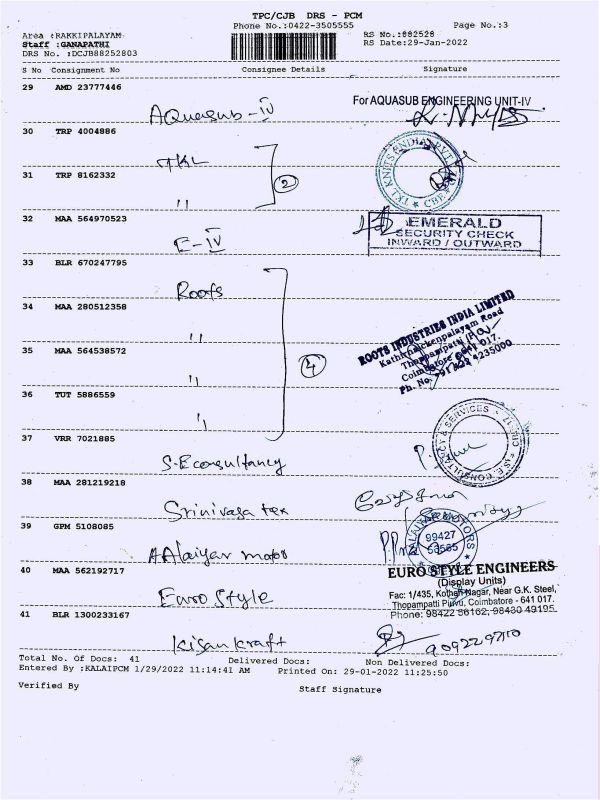 TPC/CJB DRS - PCM
Phone No.:0422-3505555
Page No.:3
Area :RAKKIPALAYAM
RS No.:882528
Staff :GANAPATHI
RS Date:29-Jan-2022
DRS No. :DCJB88252803
S No Consignment No Consignee Details Signature
29 AMD 23777446
Aquasub-IV
For AQUASUB ENGINEERING UNIT-IV
30 TRP 4004886
TKL
TKL KNITS INDIA PVT
CBE
31 TRP 8162332
"
2
32 MAA 564970523
E-IV
EMERALD
SECURITY CHECK
INWARD / OUTWARD
33 BLR 670247795
Roots
34 MAA 280512358
"
ROOTS INDUSTRIES INDIA LIMITED
Kathirnaickenpalayam Road
Thoppampatti
Coimbatore 641 017.
Ph. No. 4235000
35 MAA 564538572
"
4
36 TUT 5886559
"
37 VRR 7021885
S.E consultancy
S.E. CONSULTANCY & SERVICES
38 MAA 281219218
Srinivasa tex
39 GPM 5108085
AAlaiyar motor
MOTORS
99427
56565
40 MAA 562192717
Euro Style
EURO STYLE ENGINEERS
(Display Units)
Fac: 1/435, Kothari Nagar, Near G.K. Steel,
Thopampatti Pirivu, Coimbatore - 641 017.
Phone: 98422 56162, 98430 49195
41 BLR 1300233167
Kisan kraft
Total No. Of Docs: 41 Delivered Docs: Non Delivered Docs:
Entered By :KALAIPCM 1/29/2022 11:14:41 AM Printed On: 29-01-2022 11:25:50
Verified By Staff Signature